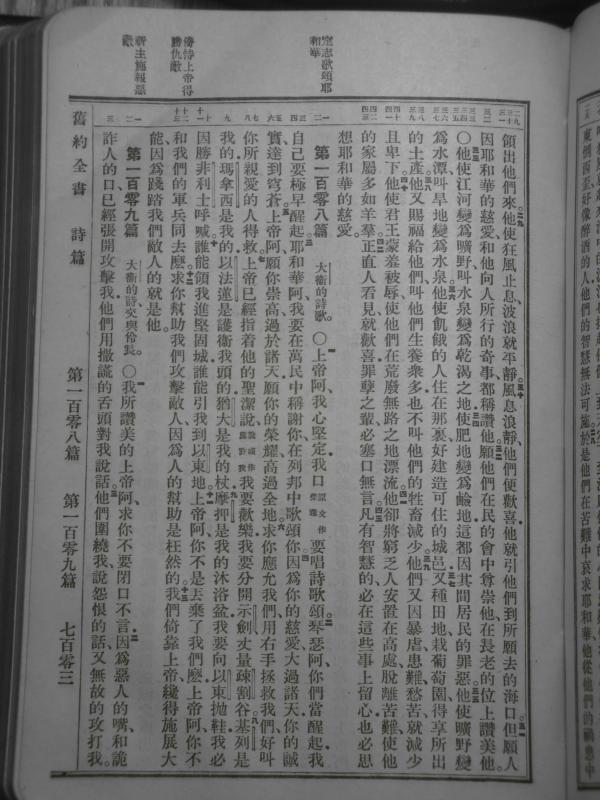 定志歌頌耶
和華
倚恃上帝得
勝仇敵
祈主施報惡
敵
領出他們來他使狂風止息波浪就平靜風息浪靜他們便歡喜他就引他們到所願去的海口但願人
因耶和華的慈愛和他向人所行的奇事都稱讚他願他們在民的會中尊崇他在長老的位上讚美他
〇他使江河變爲曠野叫水泉變爲乾渴之地使肥地變爲鹼地這都因其間居民的罪惡他使曠野變
爲水潭叫旱地變爲水泉他使飢餓的人住在那裏好建造可住的城邑又種田地栽葡萄園得享所出
的土產他又賜福給他們叫他們生養衆多也不叫他們的牲畜減少他們又因暴虐患難愁苦就減少
且卑下他使君王蒙羞被辱使他們在荒廢無路之地漂流他卻將窮乏人安置在高處脫離苦難使他
的家屬多如羊羣正直人看見就歡喜罪孽之輩必塞口無言凡有智慧的必在這些事上留心也必思
想耶和華的慈愛
第一百零八篇 大衛的詩歌 〇上帝阿我心堅定我口 原文作榮耀 要唱詩歌頌琴瑟阿你們當醒起我
自己要極早醒起耶和華阿我要在萬民中稱謝你在列邦中歌頌你因爲你的慈愛大過諸天你的誠
實達到穹蒼上帝阿願你崇高過於諸天願你的榮耀高過全地求你應允我們用右手拯救我們好叫
你所親愛的人得救上帝已經指着他的聖潔說 我要歡樂我要分開示劍丈量疎割谷基列是
我的瑪拿西是我的以法蓮是護衛我頭的猶大是我的杖摩押是我的沐浴盆我要向以東拋鞋我必
因勝非利士呼喊誰能領我進堅固城誰能引我到以東地上帝阿你不是丟棄了我們麼上帝阿你不
和我們的軍兵同去麼求你幫助我們攻擊敵人因爲人的幫助是枉然的我們倚靠上帝纔得施展大
能因爲踐踏我們敵人的就是他
第一百零九篇 大衛的詩交與伶長 〇我所讚美的上帝阿求你不要閉口不言因爲惡人的嘴和詭
詐人的口已經張開攻擊我他們用撒謊的舌頭對我說話他們圍繞我說怨恨的話又無故的攻打我
舊約全書 詩篇 第一百零八篇 第一百零九篇 七百零三